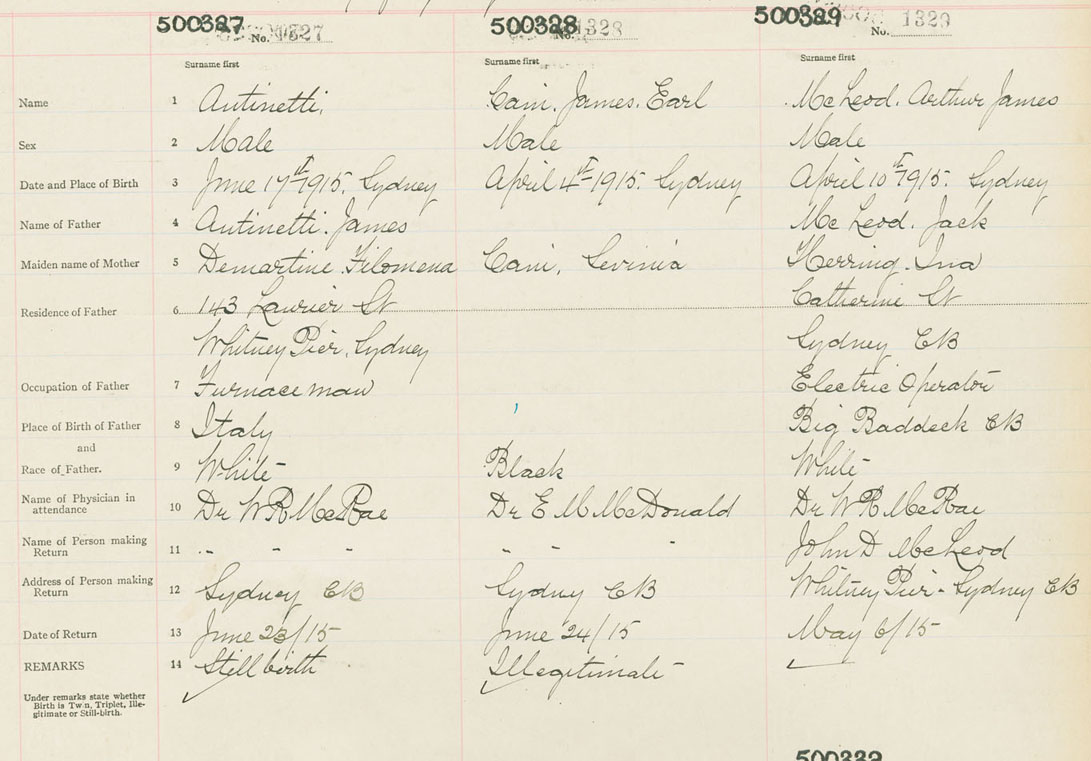 500327 500328 500329
No. 1327 No. 1328 No. 1329
Surname first Surname first Surname first
Name 1 Antinetti. Cain. James. Earl McLeod. Arthur James
Sex 2 Male Male Male
Date and Place of Birth 3 June 17th 1915. Sydney April 4th 1915. Sydney April 10th 1915. Sydney
Name of Father 4 Antinetti. James McLeod. Jack
Maiden name of Mother 5 Demartine. Filomena Cain, Levinia Herring. Ina
Residence of Father 6 143 Laurier St Catherine St
Whitney Pier, Sydney Sydney CB
Occupation of Father 7 Furnaceman Electric Operator
Place of Birth of Father 8 Italy Big Baddeck CB
and
Race of Father. 9 White Black White
Name of Physician in
attendance 10 Dr W R McRae Dr E M McDonald Dr W R McRae
Name of Person making
Return 11 " " " " " " John D McLeod
Address of Person making
Return 12 Sydney CB Sydney CB Whitney Pier - Sydney CB
Date of Return 13 June 23/15 June 24/15 May 6/15
REMARKS 14 Still birth Illegitimate
Under remarks state whether
Birth is Twn, Triplet, Ille-
gitimate or Still-birth.